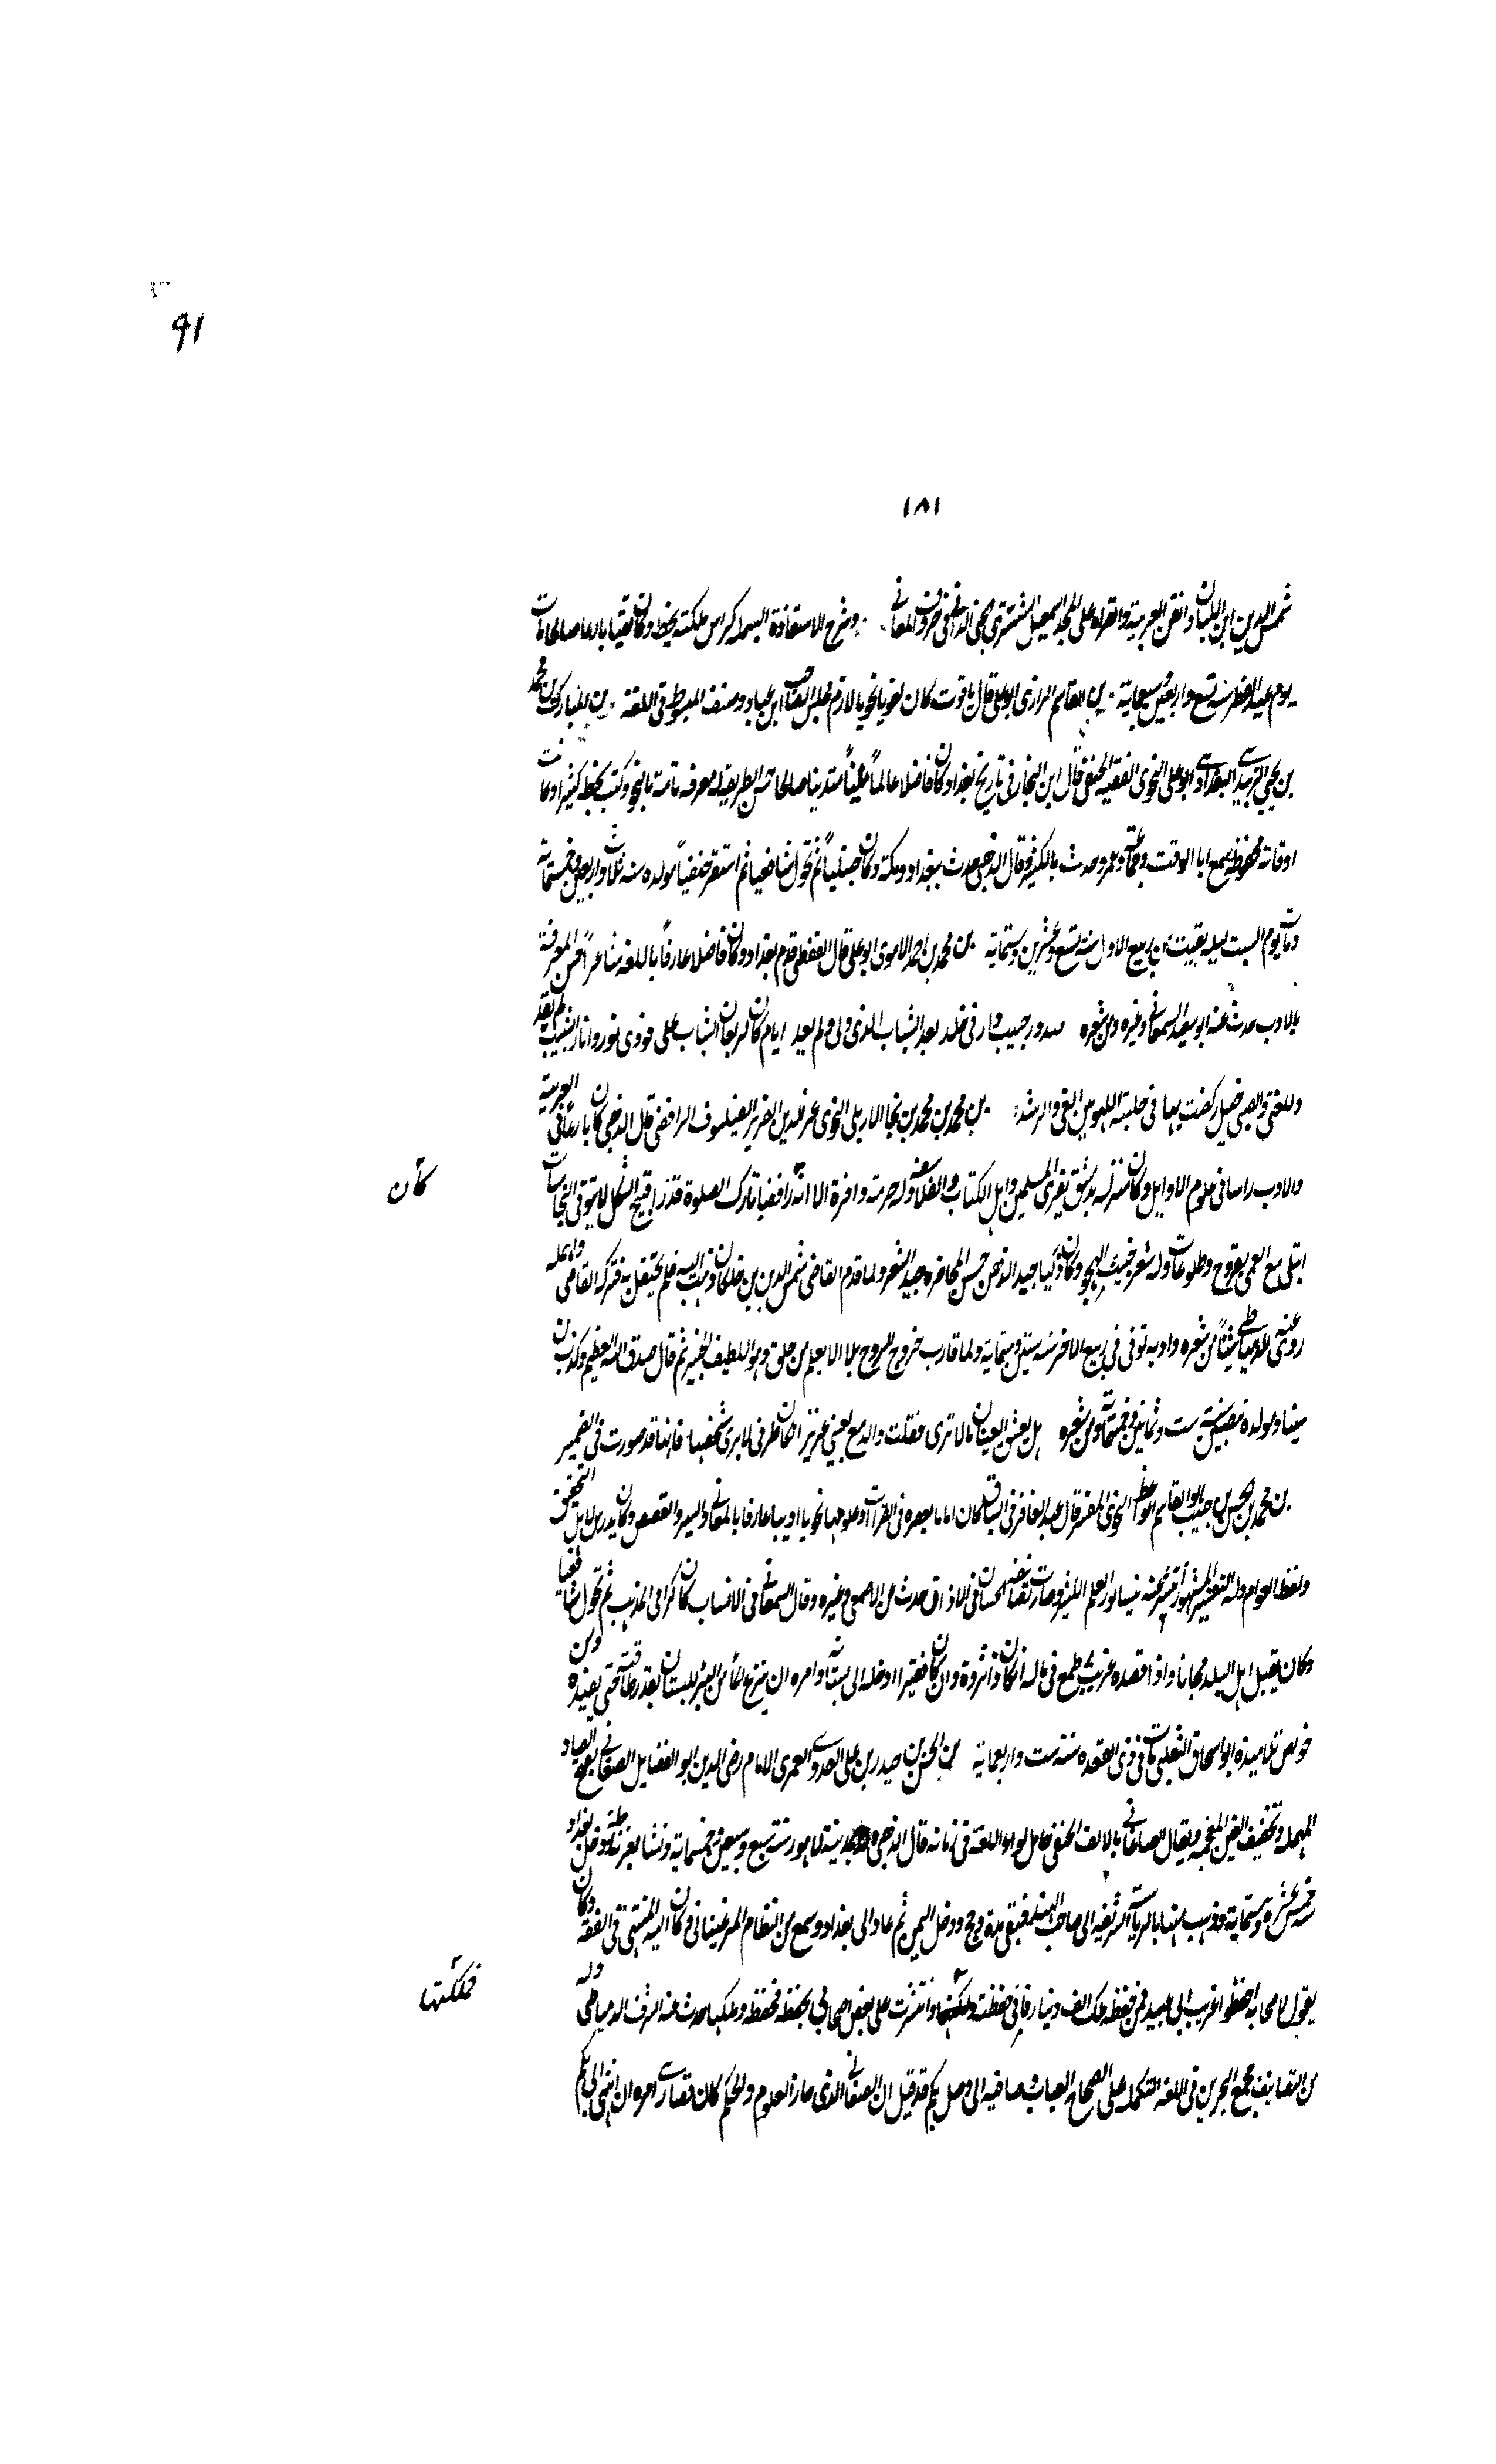 ٩١
١٨١
شمس الدين ابن اللبان واتقن العربية والقراءة على المجد اسمعيل الششترى الجنى الدانى فى حروف المعانى وشرح الاستعاذة البسملة كراس ملكته بخطه وكان تقيا صالحا مات
يوم عيد الفطر سنة تسع واربعين وسبعماية بن القاسم الرازى ابو على قال ياقوت كان لغويا نحويا لازم مجلس الصاحب ابن عباد وصنف المبسوط فى اللغة بن المبارك بن محمد
بن يحيى الزبيدى البغدادى ابو على النحوى الفقيه الحنفى قال ابن النجار فى تاريخ بغداد كان فاضلا عالماً اميناً متدينا صالحا حسن الطريقة له معرفة تامة بالنحو وكتب بخطه كثيرا وكانت
اوقاته محفوظة سمع ابا الوقت وجماعة وعمر وحدث بالكثير وقال الذهبى حدث ببغداد ومكة وكان حنبلياً ثم تحول شافعيا ثم استقر حنفياً مولده سنة ثلاث واربعين وخمسماية
ومات يوم السبت ليلة بقيت من ربيع الاول سنة تسع وعشرين وستماية بن محمد بن احمد الاموى ابو على قال القفطى قدم بغداد وكان فاضلا عارفاً باللغة شاعراً حسن المعرفة
بالادب حدث عنه ابو سعيد السمعانى وغيره ومن شعره صدور حبيب وار فى خلد بعد الشباب الذى ولى ولم يعد ايام كان لريعان الشباب على فودى نور ونار الشيب لم تقد
وللغنى والصبى خيل ركضت بها فى حلبة اللهو بين الغى والرشد بن محمد بن محمد بن نجا الاربلى النحوى عز الدين الضرير الفيلسوف الرافضى قال الذهبى كان بارعاً فى العربية
والادب راسا فى علوم الاوايل وكان منزله بدمشق يقرى المسلمين واهل الكتاب والفلاسفة وله حرمة وافرة الا انه رافضيا تارك الصلوة قذرا قبيح الشكل لا يتوقى النجاسات
كان
ابتلى مع العمى بقروح وطلوعات وله شعر خبيث الهجو وكان ذكيا جيد الذهن حسن المحاضرة جيد الشعر ولما قدم القاضى شمس الدين بن خلكان ذهب اليه فلم يحتفل به فتركه القاضى واهمله
روى عنه الدمياطى شيئاً من شعره وادبه توفى فى ربيع الاخر سنة ستين وستماية ولما قارب خروج الروح تلا الا يعلم من خلق وهو اللطيف الخبير ثم قال صدق الله العظيم وكذب ابن
سينا ومولده بنصيبين سنة ست وثمانين وخمسماية ومن شعره هل يعشق العينان ما لا ترى فقلت والدمع بعينى غزير ان كان طرفى لا يرى شخصها فانها قد صورت فى الضمير
بن محمد بن الحسن بن حبيب ابو القاسم الواعظ النحوى المفسر قال عبد الغافر فى السياق كان امام عصره فى القراات وعلومها نحويا اديبا عارفا بالمغازى والسير والقصص وكان يدرس لاهل التحقيق
ويعظ العوام وله التفسير المشهور انتشر عنه بنيسابور العلم الكثير وصارت تصانيفه الحسان فى الافاق حدث عن الاصم وغيره وقال السمعانى فى الانساب كان كرامى المذهب ثم تحول شافعيا
وكان يقبل اهل البلد مجانا واذا قصده غريب طمع فى ماله ان كان ذا ثروة وان كان فقيرا ادخله الى بستانه وامره ان ينزح الماء من البئر للبستان بقدر طاقته حتى يفيده ومن
خواص تلاميذه ابو اسحاق الثعلبى مات فى ذى القعدة سنة ست واربعماية بن الحسن بن حيدر بن على العدوى العمرى الامام رضى الدين ابو الفضايل الصغانى بفتح الصاد
المهملة وتخفيف الغين المعجمة ويقال الصاغانى بالالف الحنفى حامل لواء اللغة فى زمانه قال الذهبى ولد بمدينة لاهور سنة سبع وسبعين وخمسماية ونشا بغزنة ودخل بغداد
سنة خمس عشره وستماية وذهب منها بالرياسة الشريفة الى صاحب الهند فبقى مدة وحج ودخل اليمن ثم عاد الى بغداد وسمع من النظام المرغينانى وكان اليه المنتهى فى اللغة وكان
يقول لاصحابه احفظوا غريب ابى عبيد فمن حفظه ملك الف دينار فانى حفظته وملكتها واشرت على بعض اصحابى بحفظه فحفظه وملكها حدث عنه الشرف الدمياطى وله
فملكتها
من التصانيف مجمع البحرين فى اللغة التكملة على الصحاح العباب وصل فيه الى فصل بكم قد قيل ان الصغانى الذى حاز العلوم والحكم كان قصارى امره ان انتهى الى بكم